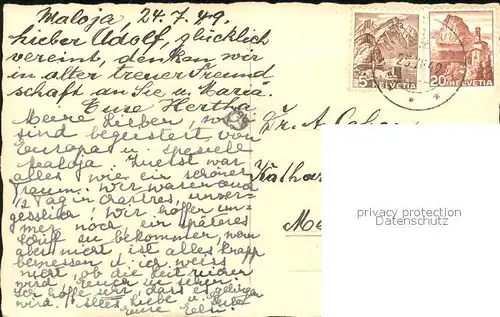 Maloja, 24.7.49.
Lieber Adolf, glücklich
vereint, denken wir
in alter treuer Freund
schaft an Sie u. Maria.
Eure Hertha
Meine Lieben, wir
sind begeistert von
Europa u. speziell
Maloja. Zuerst war
alles wie ein schöner
Traum. Wir waren auch
1 Tag in Chartres, unver-
gesslich! Wir hoffen im-
mer noch ein späteres
Schiff zu bekommer, wenn
aber nicht ist alles knapp
bemessen u. ich weiss
nicht, ob die Zeit reichen
wird, Euch zu sehen.
Ich hoffe sehr, dass es gelingen
wird. Alles Liebe u.
Eure
Dr. A.
5 HELVETIA
20 HELVETIA
privacy protection
Datenschutz